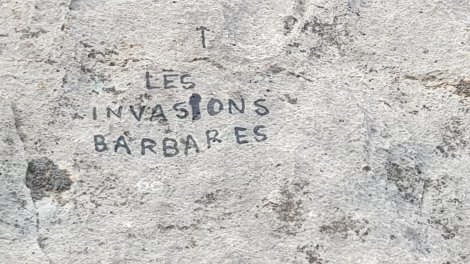 LES
INVASIONS
BARBARES